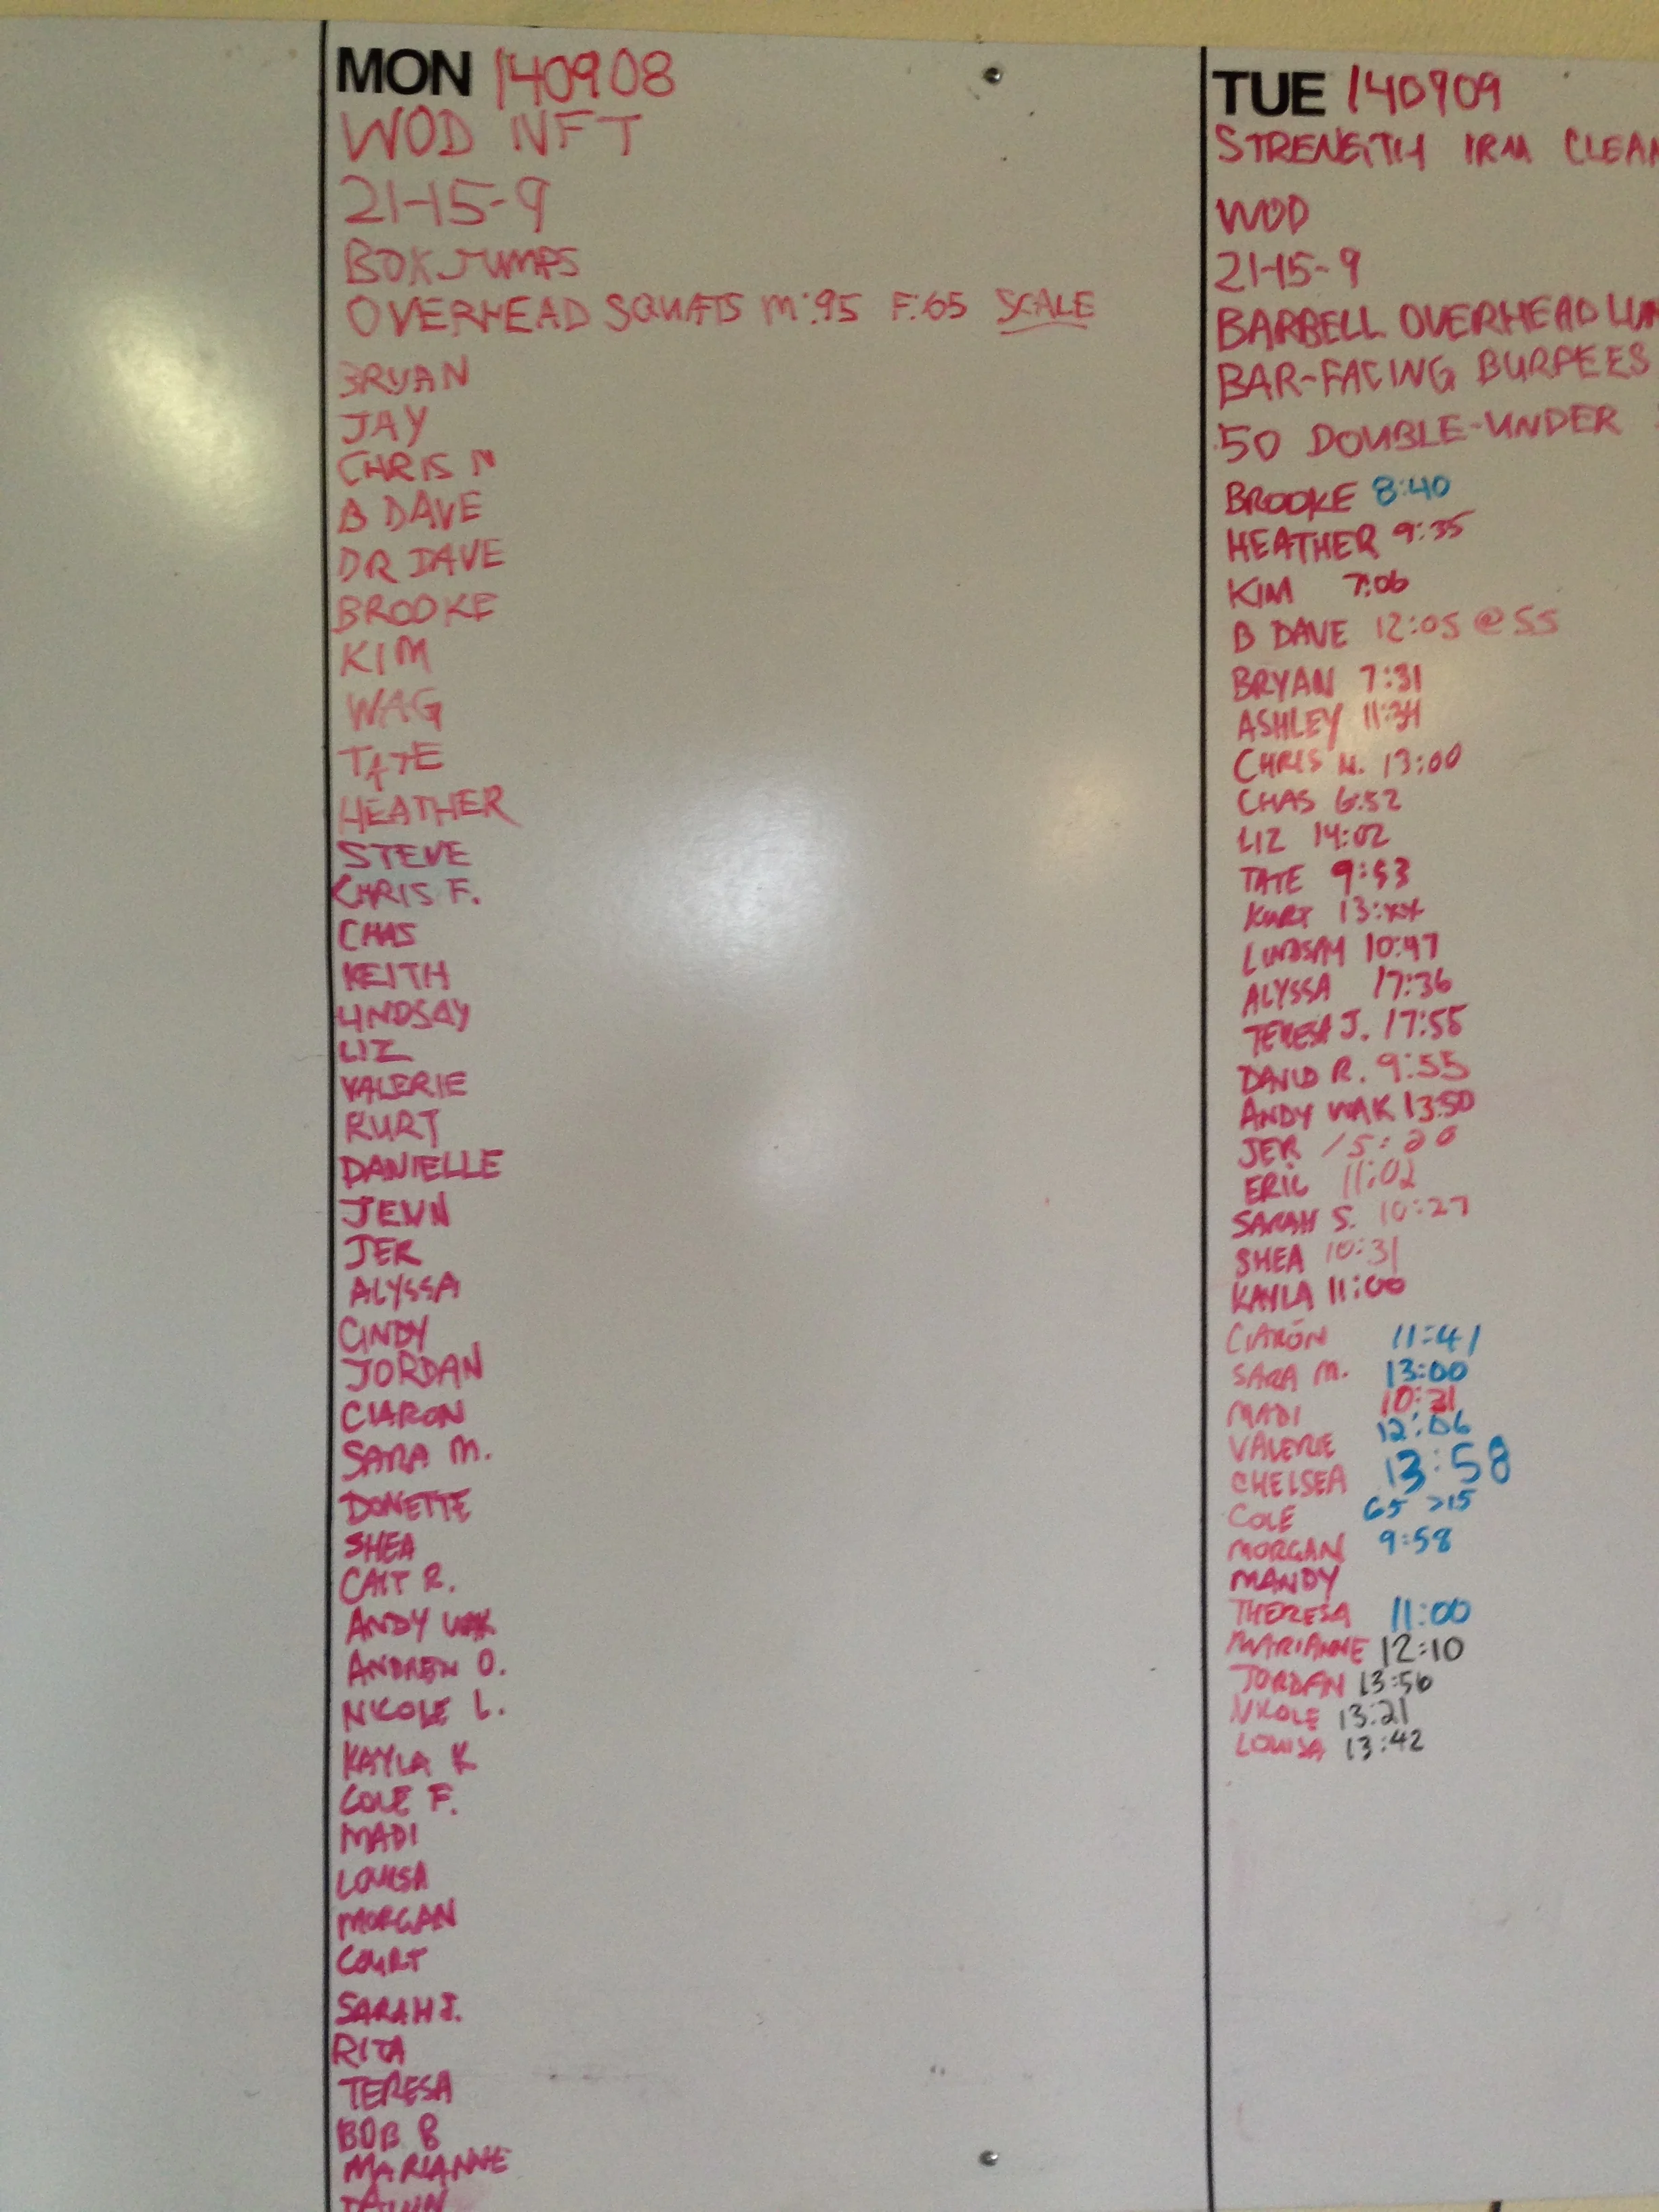 MON 140908
WOD NFT
21-15-9
BOX JUMPS
OVERHEAD SQUATS M:95 F:65 SCALE
BRYAN
JAY
CHRIS N
B DAVE
DR DAVE
BROOKE
KIM
WAG
TATE
HEATHER
STEVE
CHRIS F.
CHAS
KEITH
LINDSAY
LIZ
VALERIE
KURT
DANIELLE
JENN
JER
ALYSSA
CINDY
JORDAN
CIARON
SARA M.
DONETTE
SHEA
CAIT R.
ANDY WAK
ANDREW O.
NICOLE L.
KAYLA K
COLE F.
MADI
LOUISA
MORGAN
COURT
SARAH J.
RITA
TERESA
BOB B
MARIANNE
TUE 140909
STRENGTH 1RM CLEAN
WOD
21-15-9
BARBELL OVERHEAD
BAR-FACING BURPEES
50 DOUBLE-UNDER
BROOKE 8:40
HEATHER 9:35
KIM 7:06
B DAVE 12:05 @ 55
BRYAN 7:31
ASHLEY 11:34
CHRIS N. 13:00
CHAS 6:52
LIZ 14:02
TATE 9:53
KURT 13:xx
LINDSAY 10:47
ALYSSA 17:36
TERESA J. 17:55
DAVID R. 9:55
ANDY WAK 13:50
JER 15:20
ERIC 11:02
SARAH S. 10:27
SHEA 10:31
KAYLA 11:00
CIARÓN 11:41
SARA M. 13:00
MADI 10:31
VALERIE 12:06
CHELSEA 13:58
COLE 65 >15
MORGAN 9:58
MANDY
THERESA 11:00
MARIANNE 12:10
JORDAN 13:56
NICOLE 13:21
LOUISA 13:42